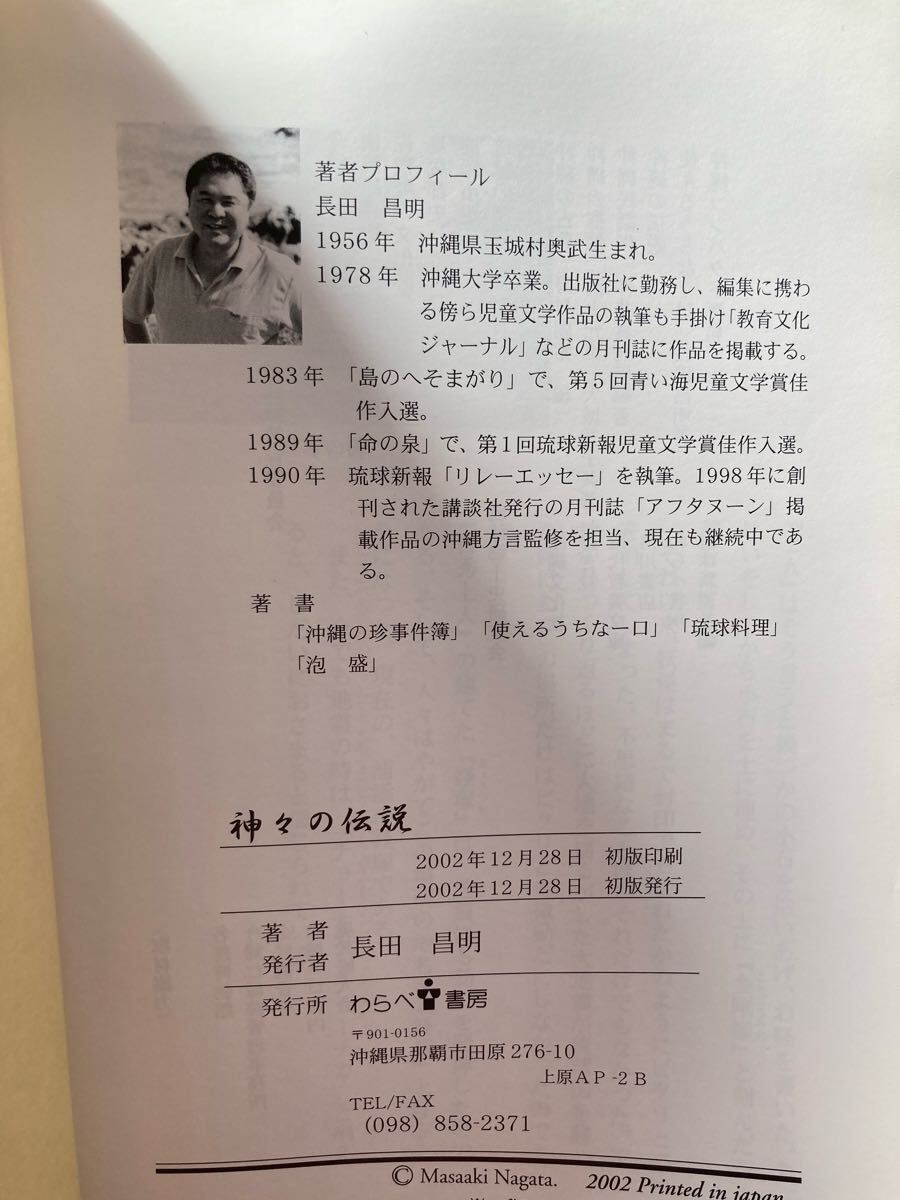 著者プロフィール
長田　昌明
1956年　沖縄県玉城村奥武生まれ。
1978年　沖縄大学卒業。出版社に勤務し、編集に携わ
る傍ら児童文学作品の執筆も手掛け「教育文化
ジャーナル」などの月刊誌に作品を掲載する。
1983年　「島のへそまがり」で、第5回青い海児童文学賞佳
作入選。
1989年　「命の泉」で、第1回琉球新報児童文学賞佳作入選。
1990年　琉球新報「リレーエッセー」を執筆。1998年に創
刊された講談社発行の月刊誌「アフタヌーン」掲
載作品の沖縄方言監修を担当、現在も継続中であ
る。
著　書
「沖縄の珍事件簿」「使えるうちなー口」「琉球料理」
「泡　盛」
神々の伝説
2002年12月28日　初版印刷
2002年12月28日　初版発行
著　者
発行者　長田　昌明
発行所　わらべ書房
〒901-0156
沖縄県那覇市田原276-10
上原AP-2B
TEL/FAX
(098) 858-2371
© Masaaki Nagata.　2002 Printed in japan